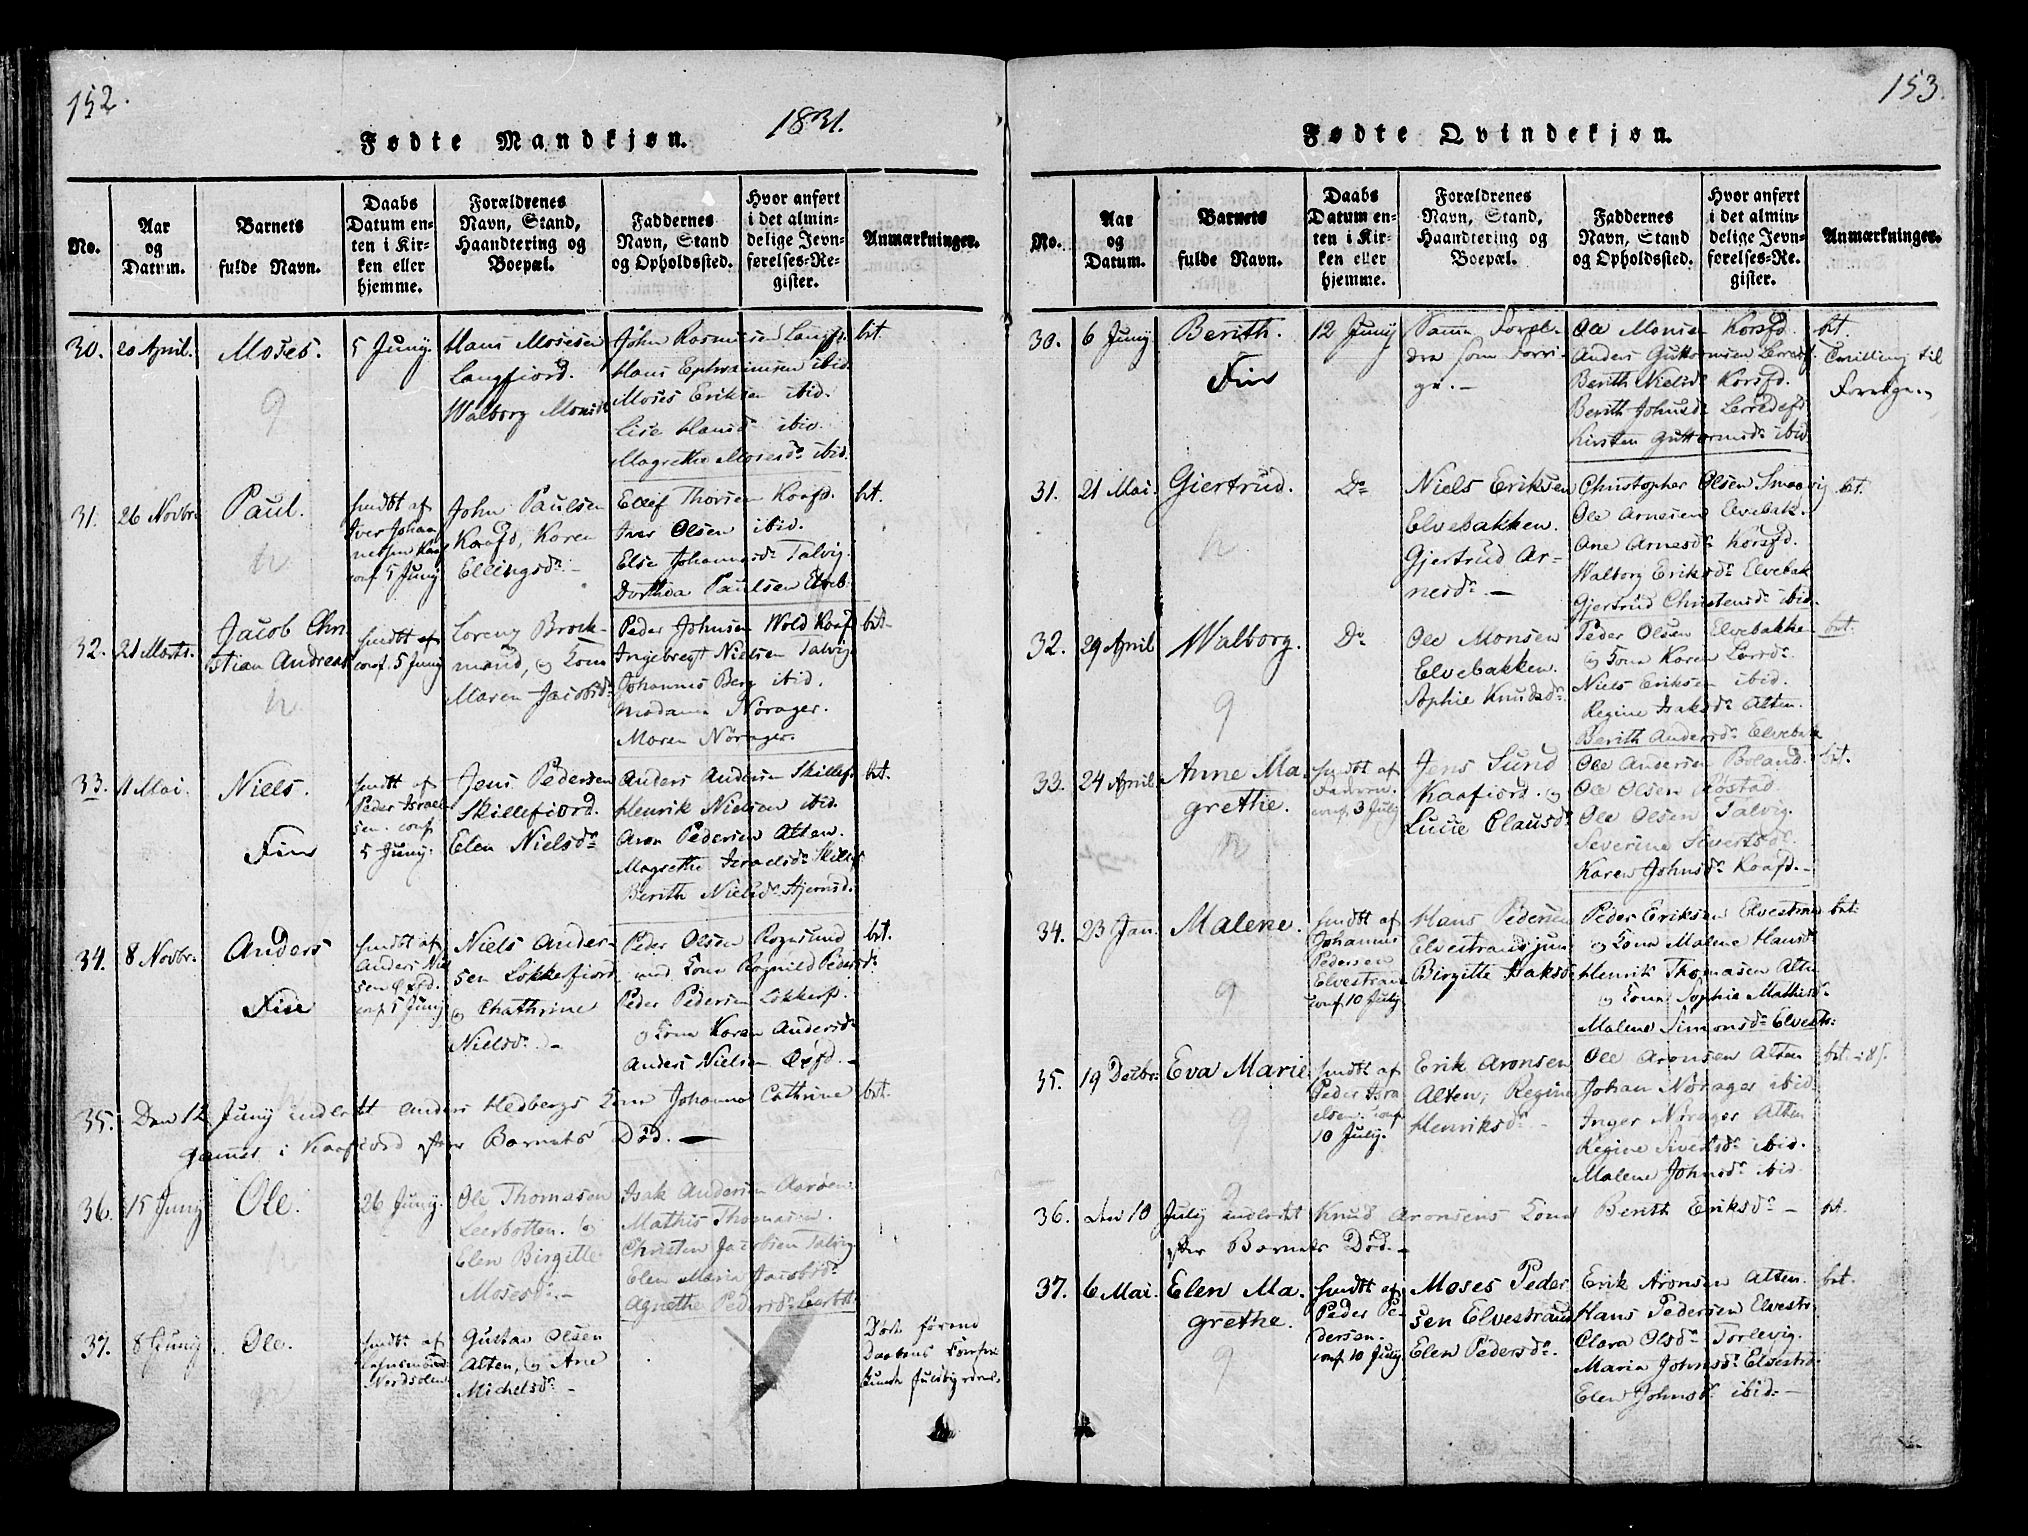 152.
1831.
Fødte Mandkjøn.
No.
Aar
og
Datum.
Barnets
fulde Navn.
Daabs
Datum en-
ten i Kir-
ken eller
hjemme.
Forældrenes
Navn, Stand,
Haandtering og
Boepæl.
Faddernes
Navn, Stand
og Opholdssted.
Hvor anført
i det almin-
delige Jevn-
førelses-Re-
gister.
Anmærkninger.
30. 20 April.
Moses.
5 Juny.
Hans Mosesen
Langfiord.
Walborg Monsdr
John Rasmusen Langf.
Hans Ephraimsen ibid.
Moses Eriksen ibid.
Lise Hansdr ibid.
Magrethe Mosesdr ibid.
bt.
31. 26 Novbr.
Paul.
hmdt af
Iver Johan
nessen Kaaf
conf. 5 Juny
John Paulsen
Kaafd, Karen
Ellingsdr. -
Ellef Thorsen Kaafd.
Iver Olsen ibid.
Else Johannsdr Talvig.
Dorthea Paulsen Elveb.
bt.
32. 21 Marts.
Jacob Chri-
stian Andreas
hmdt af
conf. 5 Juny
Lorenz Brock-
mand, og Kona
Maren Jacobsdr
Peder Johnsen Wold Kaaf
Ingebregt Nielsen Talvig
Johannes Berg ibid.
Madame Nørager.
Maren Nørager.
bt.
33. 1 Mai.
Niels.
Fin
hmdt af
Peder Israel-
sen. conf.
5 Juny.
Jens Pedersen
Skillefiord.
Elen Nielsdr
Anders Andersen Skillef.
Henrik Nielsen ibid.
Aron Pedersen Alten.
Magrethe Israelsdr Skillef
Berith Nielsdr Hjemsd.
bt.
34. 8 Novbr.
Anders
Fin
hmdt af
Anders Niel
sen Oxfd.
conf. 5 Juny
Niels Ander-
sen Lokkefiord
og Chathrine
Nielsdr. -
Peder Olsen Rognsund
med Kona Rognild Pedersdr
Peder Pedersen Lokkerf.
og Kona Karen Andersdr
Anders Nielsen Oxfd. -
bt.
35. Den 12 Juny indledt Anders Hedbergs Kone Johanna Cathrine
gamst i Kaafiord efter Barnets Død. -
bt.
36. 15 Juny
Ole.
26 Juny.
Ole Thomasen
Leerbotten. og
Elen Birgitte
Mosesdr. -
Isak Andersen Aarøen.
Mathis Thomasen.
Christen Jacobsen Talvig
Elen Maria Jacobsdr
Agnethe Pedersdr Leerbt:
37. 8 Juny
Ole.
hmdt af
Nordsolem
Gustav Olsen
Alten, og Ane
Michelsdr -
Døde førend
Daabens
kunde fuldbyrdes.
153.
Fødte Qvindekjøn.
No.
Aar
og
Datum.
Barnets
fulde Navn.
Daabs
Datum en-
ten i Kir-
ken eller
hjemme.
Forældrenes
Navn, Stand,
Haandtering og
Boepæl.
Faddernes
Navn, Stand
og Opholdssted.
Hvor anført
i det almin-
delige Jevn-
førelses-Re-
gister.
Anmærkninger.
30. 6 Juny
Berith.
Fin
12 Juny
Samme Forel-
dre som Forri-
ge. -
Ole Monsen Korsfd.
Anders Guttormsen Lerredsf.
Berith Nielsdr Korsfd.
Berith Johnsdr Lerredsfd
Kirsten Guttormsdr ibid
bt.
Tvilling til
Forrige.
31. 21 Mai.
Giertrud.
Do
Niels Eriksen
Elvebakken.
Gjertrud Ar-
nesdr. -
Christopher Olsen Smaavig
Ole Arnesen Elvebak.
Ane Arnesdr Korsfd.
Walborg Eriksdr Elvebak
Gjertrud Christensdr ibid.
bt.
32. 29 April
Walborg.
Do
Ole Monsen
Elvebakken.
Sophie Knudsdr
Peder Olsen Elvebakke
og Kona Karen Larsdr
Niels Eriksen ibid.
Regine Isaksdr Alten.
Berith Andersdr Elvebak
bt.
33. 24 April
Anne Ma-
grethe.
hmdt af
Faderen.
conf. 3 July
Jens Sund
Kaafiord. og
Lucie Clausdr
Ole Andersen Boland.
Ole Olsen Røstad.
Ole Olsen Talvig
Severine Sivertsdr.
Karen Johnsdr Kaafd. -
bt.
34. 23 Jan.
Malene.
hmdt af
Johannes
Pedersen
Elvestrand
conf. 10 July
Hans Pedersen
Elvestrand jun
Birgitte Isaksdr
Peder Eriksen Elvestrand
og Kona Malene Hansdr
Henrik Thomasen Alten
og Kona Sophie Mathisdr
Malene Simonsdr Elvestr:
bt.
35. 19 Decbr.
Eva Marie
hmdt af
Peder Isra
elsen. conf.
10 July.
Erik Aronsen
Alten, Regine
Henriksdr. -
Ole Aronsen Alten
Johan Nørager ibid
Inger Nørager Alten
Regine Sivertsdr ibid.
Malene Johnsdr ibid
bt.
36. den 10 July indledt Knud Aronsens Kone Berith Eriksdr -
efter Barnets Død. -
bt.
37. 6 Mai.
Elen Ma-
grethe.
hmdt af
Peder Pe-
dersen.
conf. 10 July
Moses Peder
sen Elvestrand
Elen Pedersdr.
Erik Aronsen Alten.
Hans Pedersen Elvestr.
Clara Olsdr Torlevig.
Maria Johnsdr Elvestr.
Elen Johnsdr ibid. -
bt.